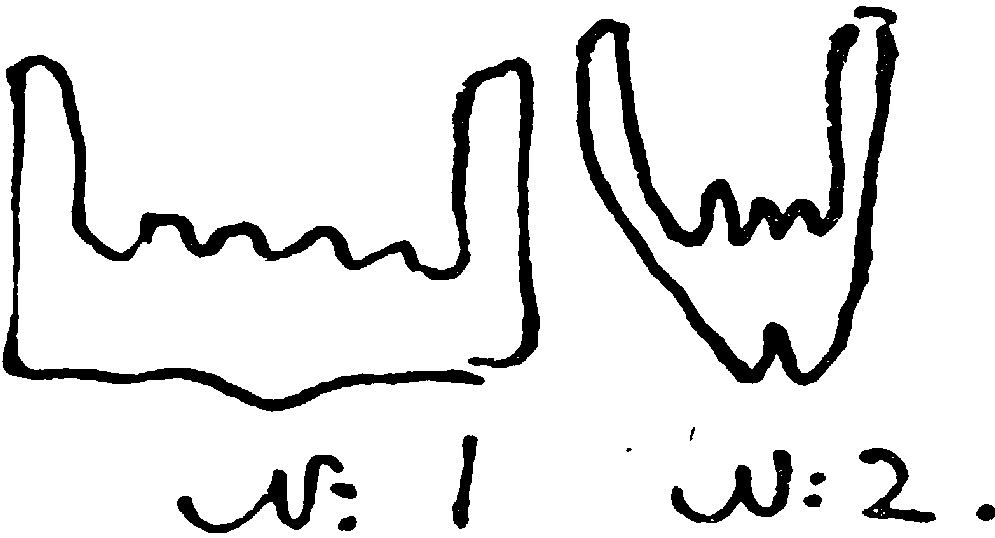 N: 1 N: 2.